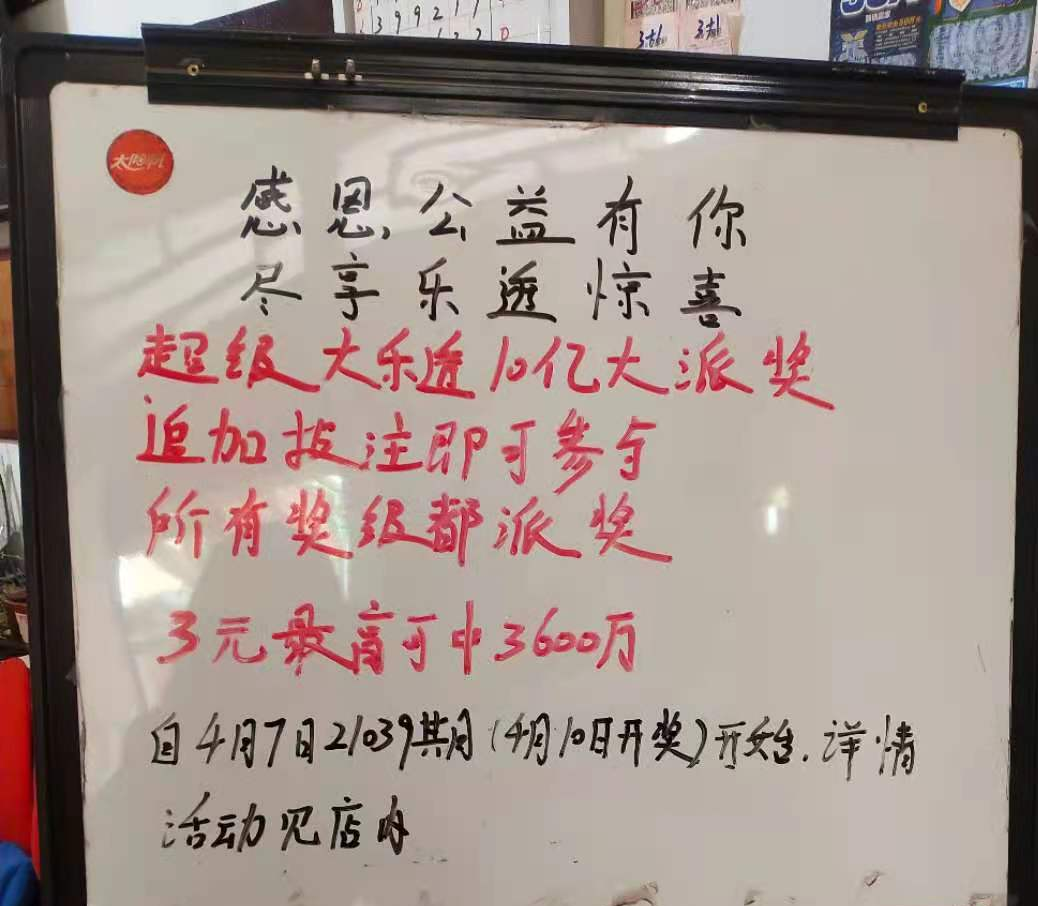 39921
3
感恩公益有你
尽享乐透惊喜
超级大乐透10亿大派奖
追加投注即可参与
所有奖级都派奖
3元最高可中3600万
自4月7日21039其月(4月10日开奖)开始.详情
活动见店内